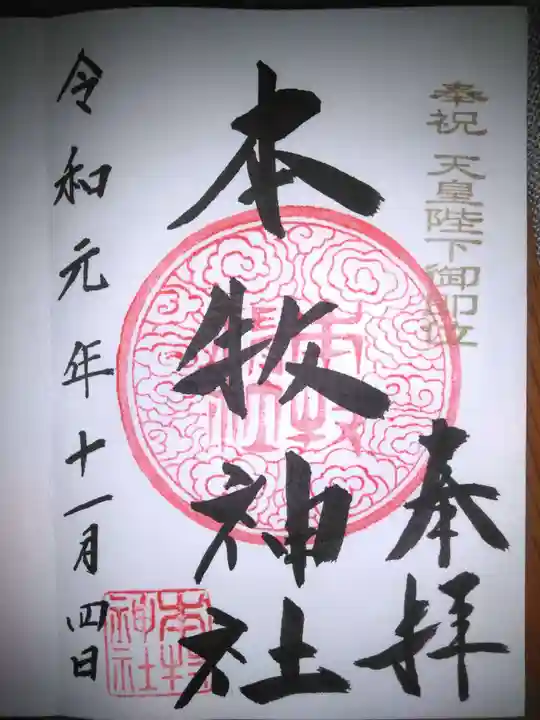 奉祝 天皇陛下御即位
奉拝
本牧神社
令和元年十一月四日
本牧
神社
本牧
神社